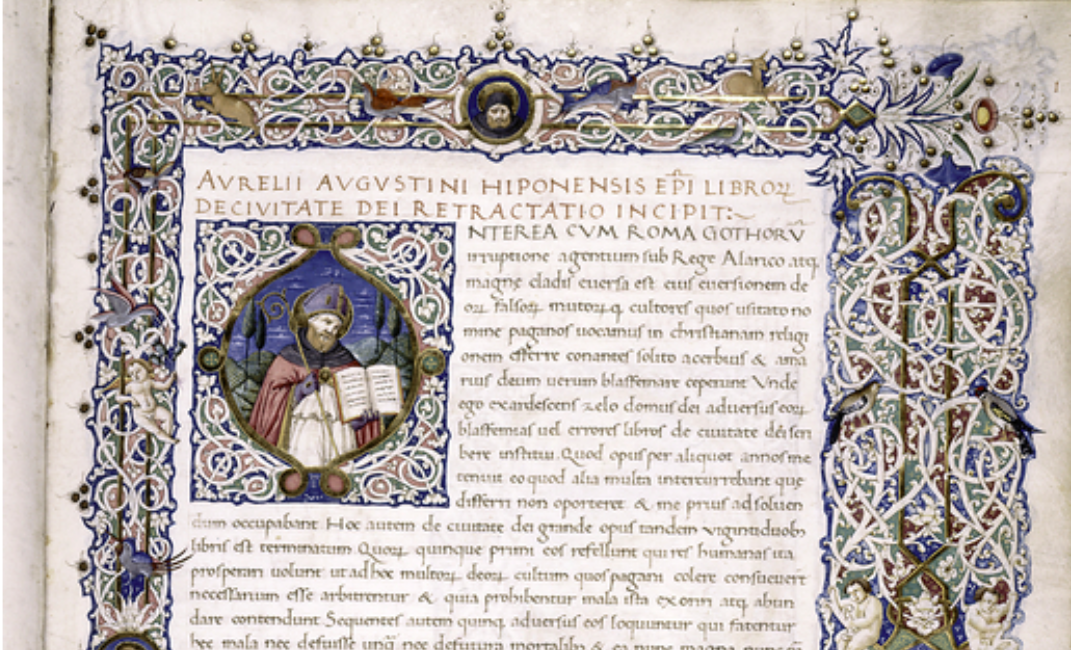 AVRELII AVGVSTINI HIPONENSIS EP̄I LIBROꝜ
DE CIVITATE DEI RETRACTATIO INCIPIT:~
NTEREA CVM ROMA GOTHORV̄
irruptione agentium sub Rege Alarico atq;
magne cladis euersa est eius euersionem de
oꝝ falsoꝝ multoꝝq; cultores quos usitato no
mine paganos uocamus in christianam religi
onem efferre conantes solito acerbius & ama
rius deum uerum blasfemare ceperunt Vnde
ego exardescens zelo domus dei aduersus eoꝝ
blasfemias uel errores libros de ciuitate dei scri
bere institui. Quod opus per aliquot annos me
tenuit eo quod alia multa intercurrebant que
differri non oporteret & me prius ad soluen
dum occupabant Hoc autem de ciuitate dei grande opus tandem viginti duobꝫ
libris est terminatum Quoꝝ quinque primi eos refellunt qui res humanas ita
prosperari uolunt ut ad hoc multoꝝ deoꝝ cultum quos pagani colere consueuerūt
necessarium esse arbitrentur & quia prohibentur mala ista exoriri atq; abun
dare contendunt Sequentes autem quinq; aduersus eos loquuntur qui fatentur
hec mala nec defuisse unq̄ nec defutura mortalibꝫ & ea nunc magna nunc